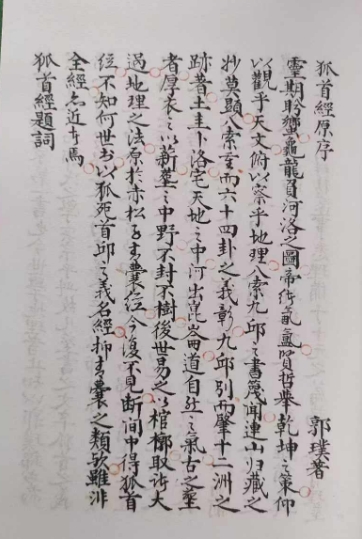 狐首經原序
郭璞著
靈期肸蠁龍龜負河洛之圖帝從亂盈賢哲舉乾坤之策仰
以觀乎天文俯以察乎地理八索九邱之書篾聞連山归藏之
抄莫顕八索玄而六十四卦之義彰九邱別而肇十二洲之
跡昔土圭卜洛宅天地之中河出崑崙道自然之氣古之塟
者厚衣之以薪塟之中野不封不樹後世易之以棺槨取諸大
過地理之法原於赤松子青囊经今復不見断間中得狐首
经不知何世书以狐死首邱之義名經抑青囊之類欤雖非
全經名近古焉
狐首經題詞